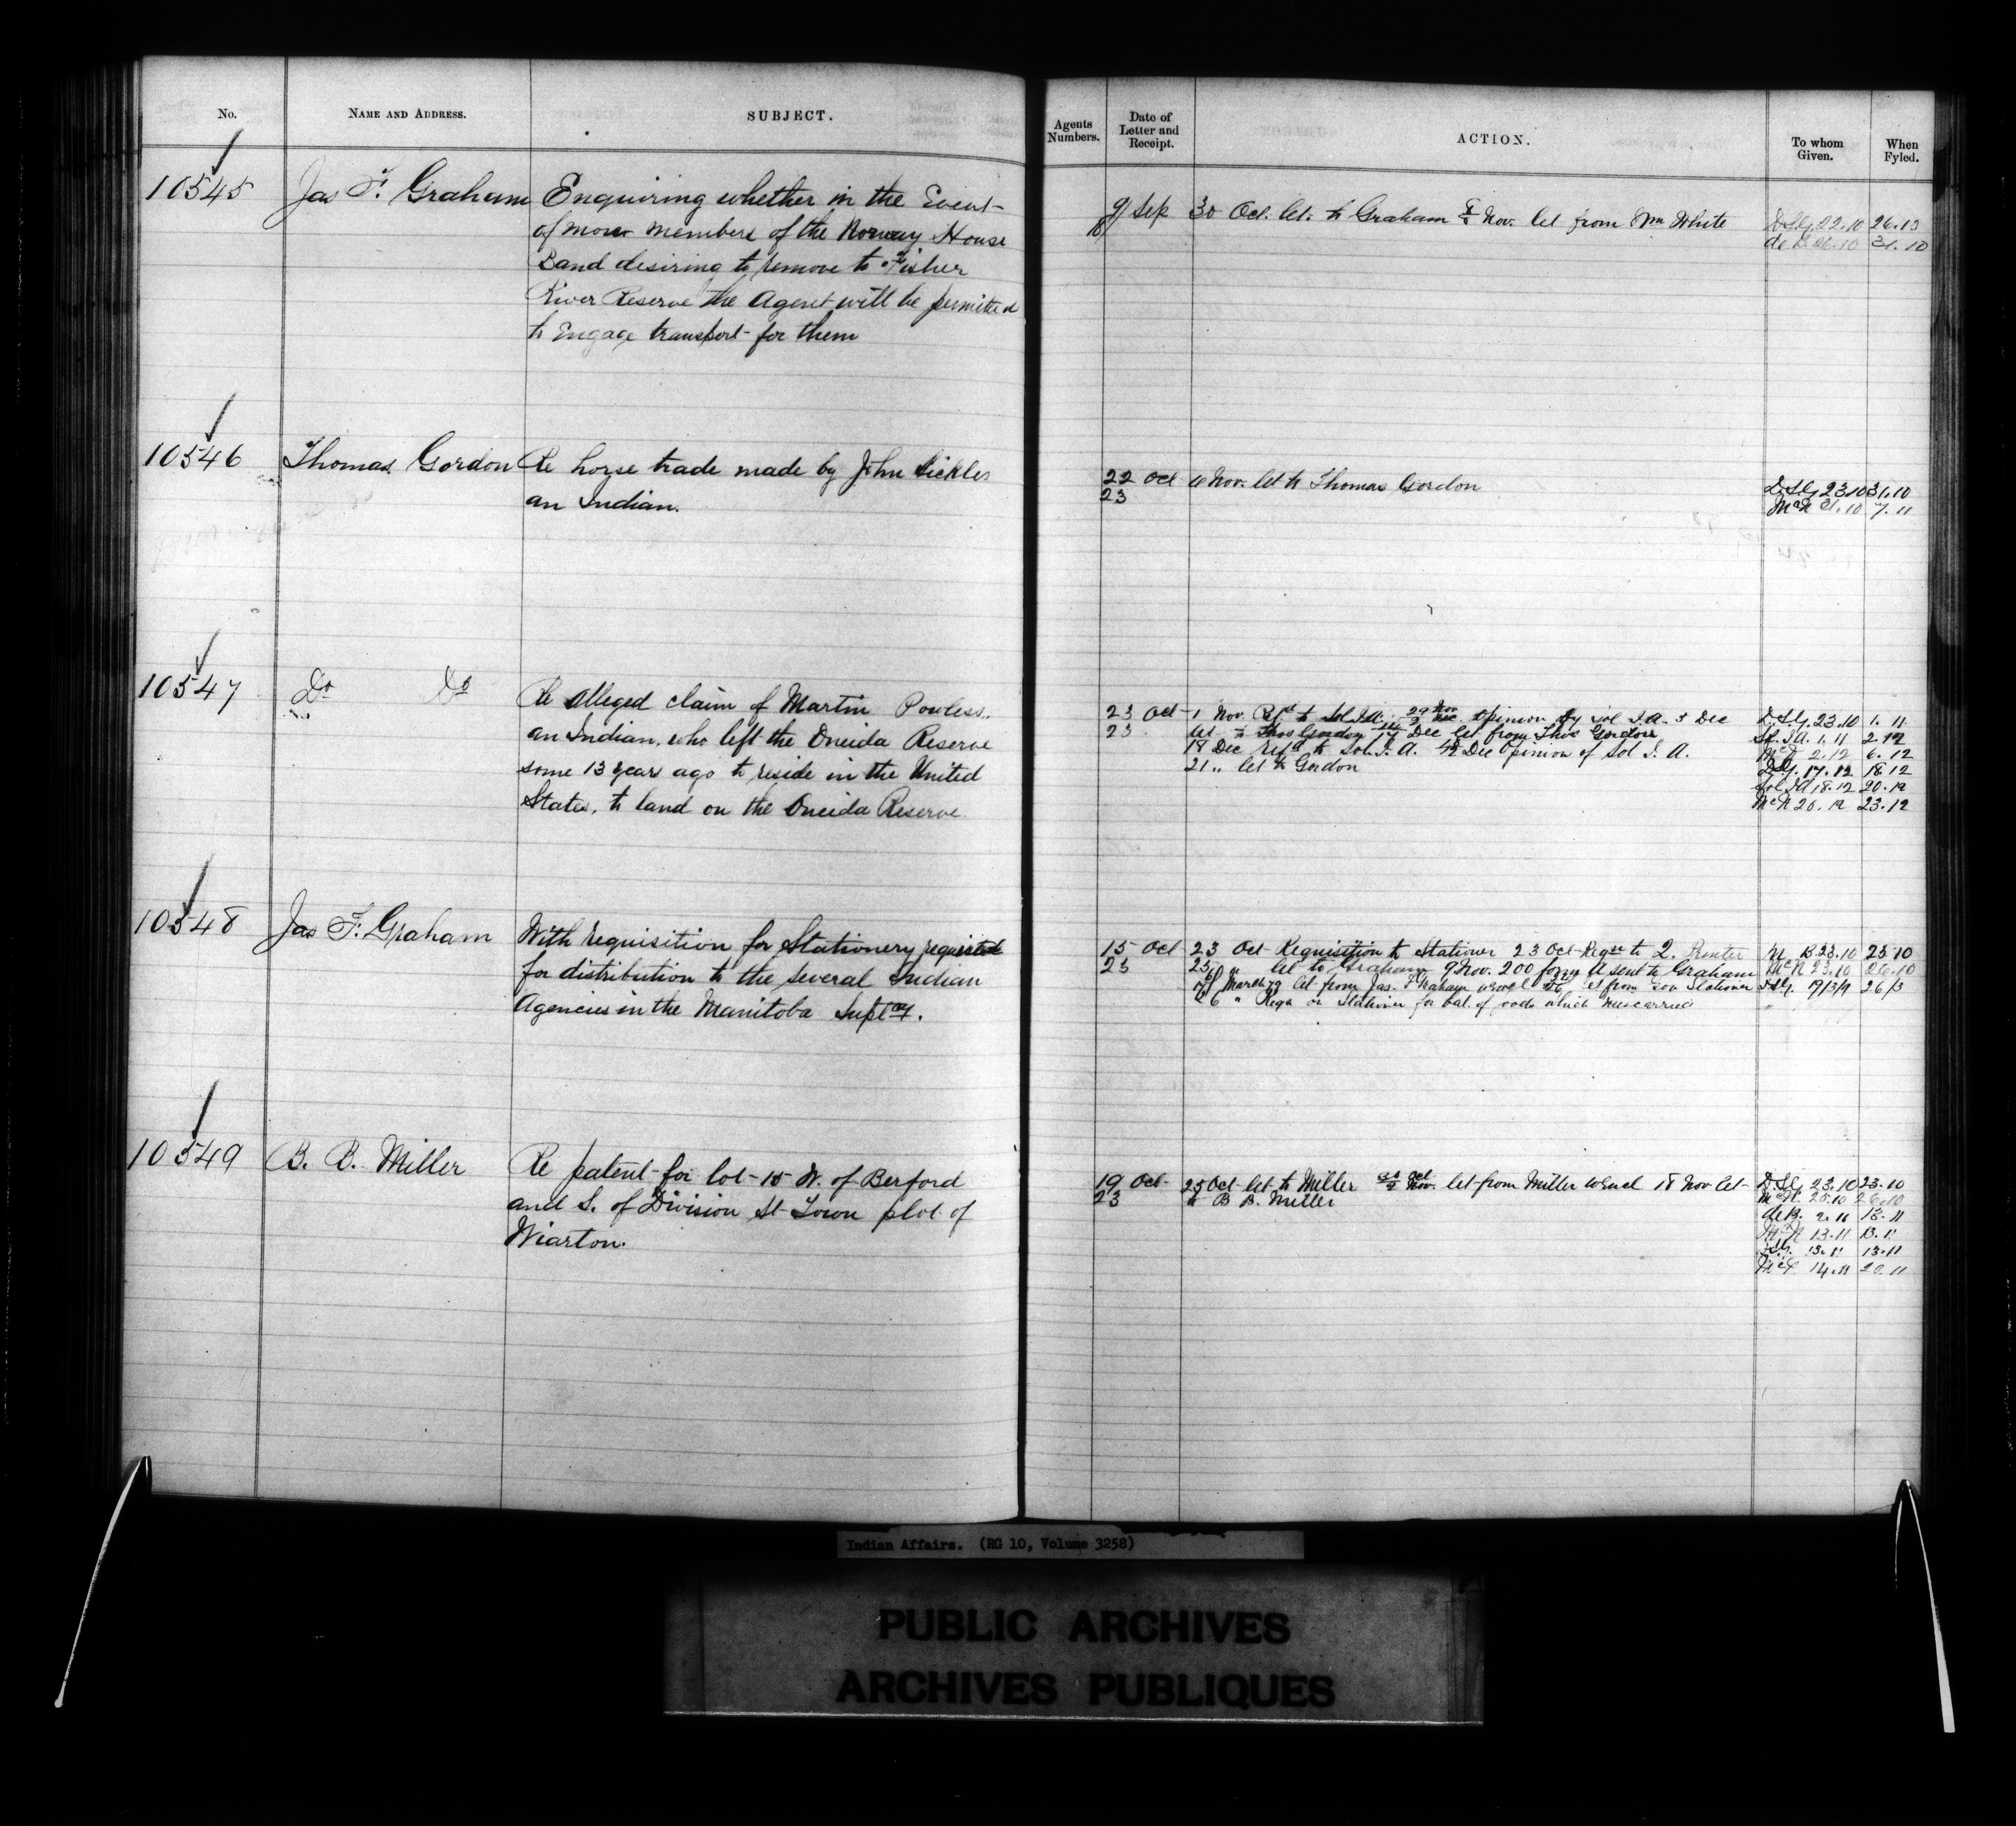 No. NAME AND ADDRESS. SUBJECT.
10545 Jas F. Graham Enquiring whether in the Event
of more members of the Norway House
Band desiring to remove to Fisher
River Reserve the Agent will be permitted
to Engage transport for them
10546 Thomas Gordon Re horse trade made by John Sickles
an Indian.
10547 Do Do Re alleged claim of Martin Powless
an Indian, who left the Oneida Reserve
some 13 years ago to reside in the United
States, to land on the Oneida Reserve
10548 Jas F. Graham With requisition for Stationery required
for distribution to the several Indian
Agencies in the Manitoba Supt cy.
10549 B. B. Miller Re patent for lot 15 W. of Berford
and S. of Division St Town plot of
Wiarton.
Agents Numbers. Date of Letter and Receipt. ACTION. To whom Given. When Fyled.
9 Sep 30 Oct. let. to Graham Nov. let from Wm White D.S.G. 22.10 26.10
de B 31.10
22 Oct Nov. let to Thomas Gordon D.S.G. 23.10 31.10
23 McN 31.10 7.11
23 Oct 1 Nov. Refd to Sol I.A. 29 Nov opinion by Sol I.A. 5 Dec D.S.G. 23.10 1.11
23 let to Thos Gordon 17 Dec let from Thos Gordon Sol. I.A. 1.11 2.12
18 Dec refd to Sol. I. A. Dec Opinion of Sol I. A. 2.12 6.12
21 " let to Gordon D.S.G. 17.12 18.12
Sol I.A. 18.12 20.12
McN 20.12 23.12
15 Oct 23 Oct Requisition to Stationer 23 Oct Reqn to 2. Printer 23.10 23.10
23 25 " let to Graham 9 Nov. 200 forms A sent to Graham McN 23.10 26.10
March 79 let from Jas. F Graham let from Stationer D.S.G. 19/3/9 26/3
" Reqn on Stationer for bal. of which miscarried
19 Oct 25 Oct let to Miller Nov. let from Miller w Encl 18 Nov let D.S.G. 23.10 23.10
23 to B B. Miller McN. 23.10 26.10
de B. 2.11 13.11
13.11 13.11
D.S.G. 13.11 13.11
14.11 20.11
Indian Affairs. (RG 10, Volume 3258)
PUBLIC ARCHIVES
ARCHIVES PUBLIQUES